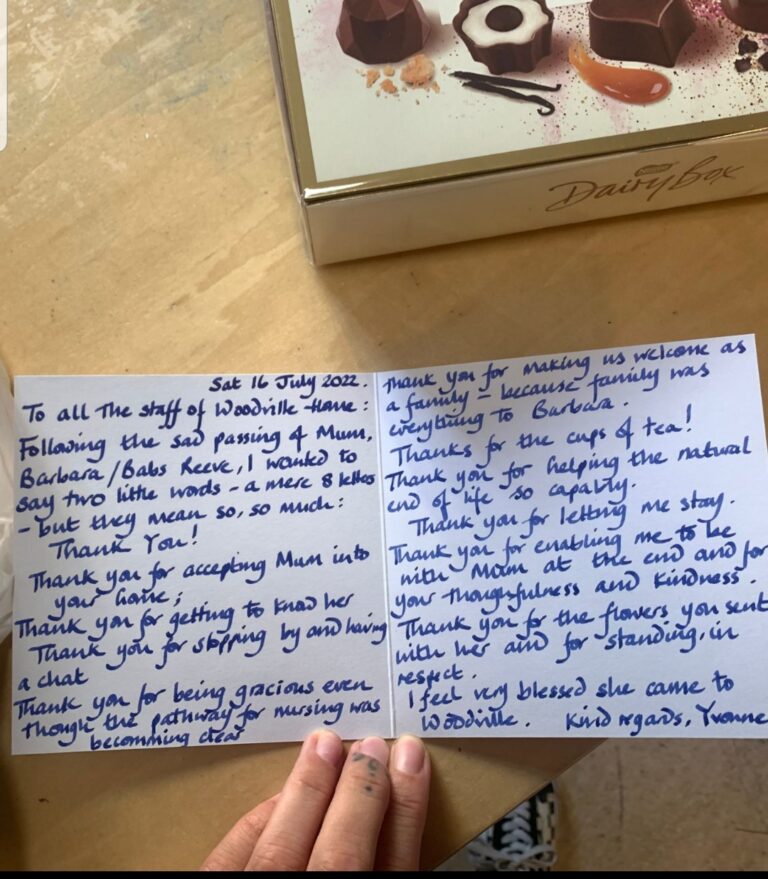 Dairy Box
Sat 16 July 2022.
To all the staff of Woodville Home:
Following the sad passing of Mum,
Barbara/Babs Reeve, I wanted to
say two little words - a mere 8 letters
- but they mean so, so much:
Thank You!
Thank you for accepting Mum into
your home;
Thank you for getting to know her
Thank you for stopping by and having
a chat
Thank you for being gracious even
though the pathway for nursing was
becomming clear
Thank you for making us welcome as
a family - because family was
everything to Barbara.
Thanks for the cups of tea!
Thank you for helping the natural
end of life so capably.
Thank you for letting me stay.
Thank you for enabling me to be
with Mum at the end and for
your thoughtfulness and kindness.
Thank you for the flowers you sent
with her and for standing, in
respect.
I feel very blessed she came to
Woodville. Kind regards, Yvonne